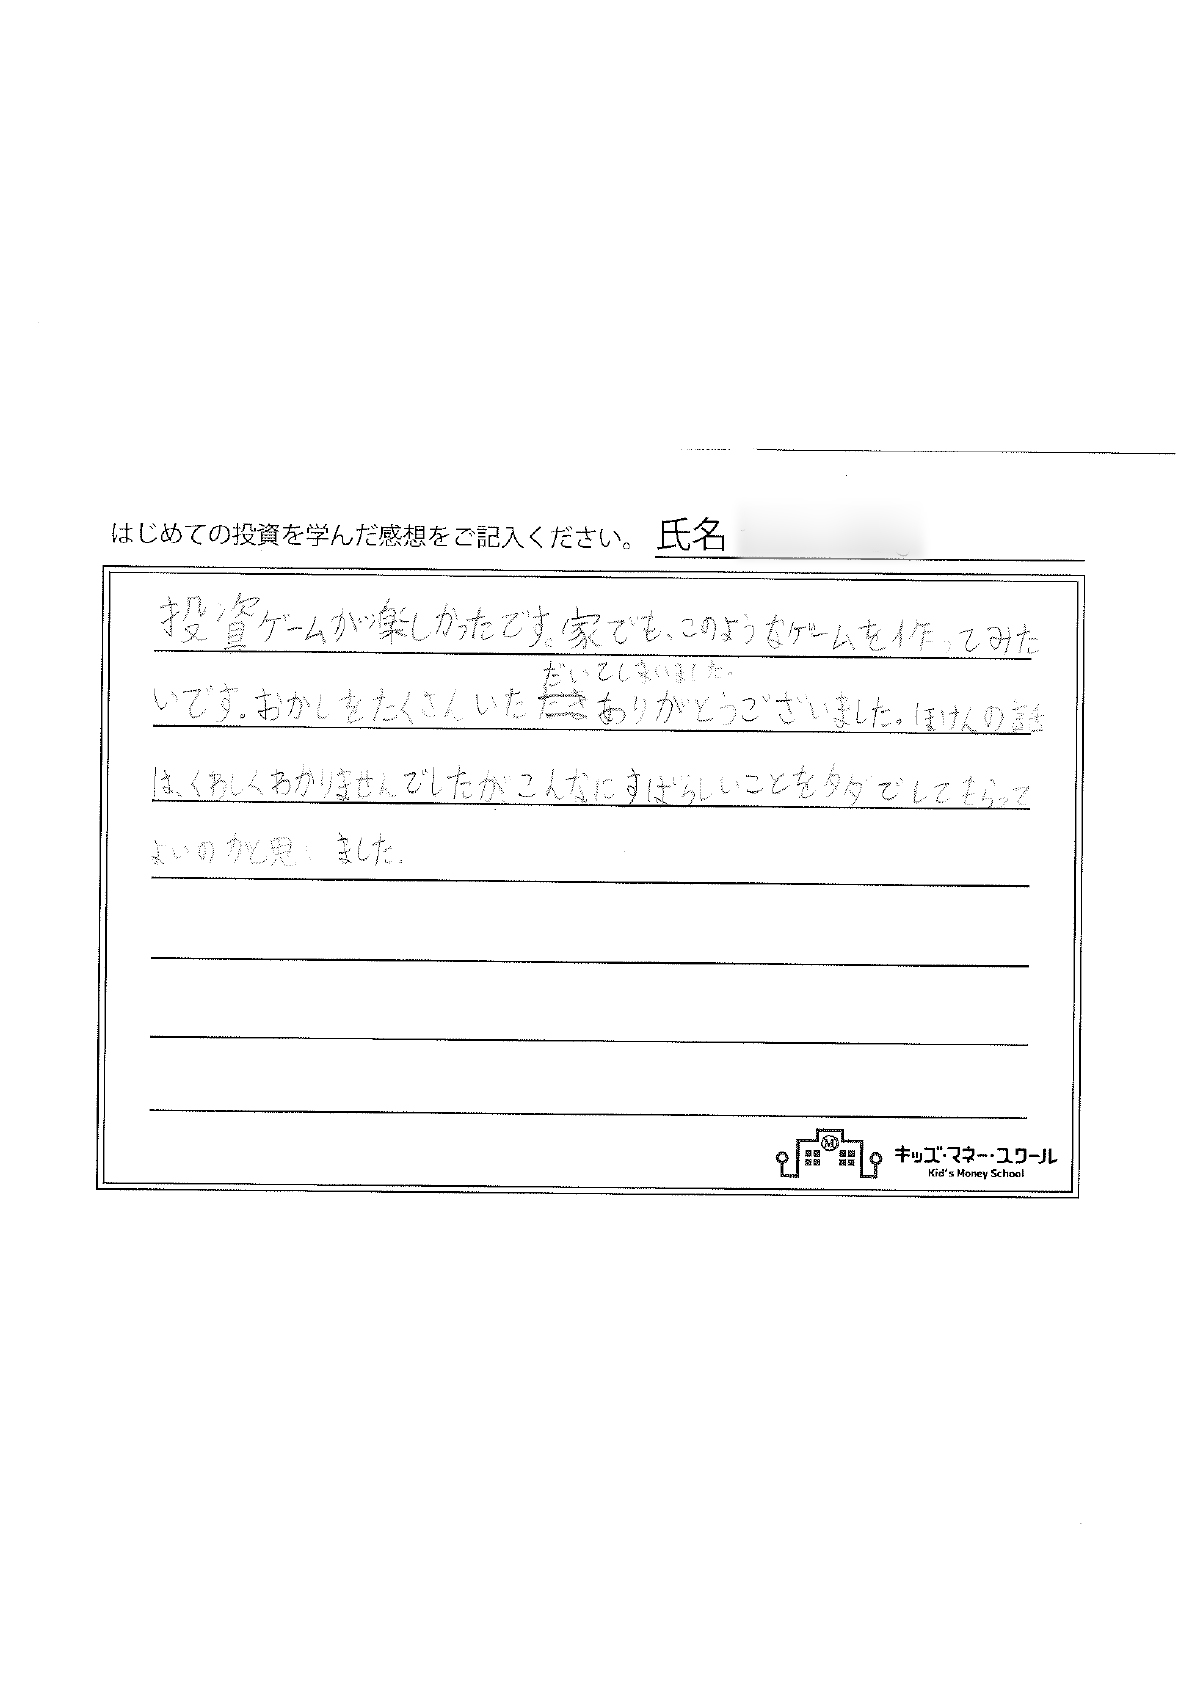 はじめての投資を学んだ感想をご記入ください。 氏名
投資ゲームが楽しかったです。家でも、このようなゲームを作ってみた
だいてしまいました。
いです。おかしをたくさんいた ありがとうございました。ほけんの話
は、くわしくわかりませんでしたがこんなにすばらしいことをタダでしてもらって
よいのかと思いました。
M
キッズ・マネー・スクール
Kid's Money School